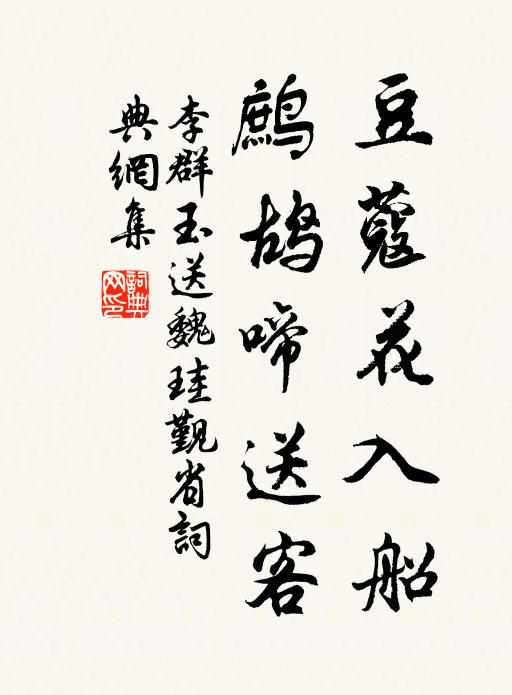 豆蔻花入船
鷓鴣啼送客
李群玉送魏珪觐省詞
典網集
詞典网印